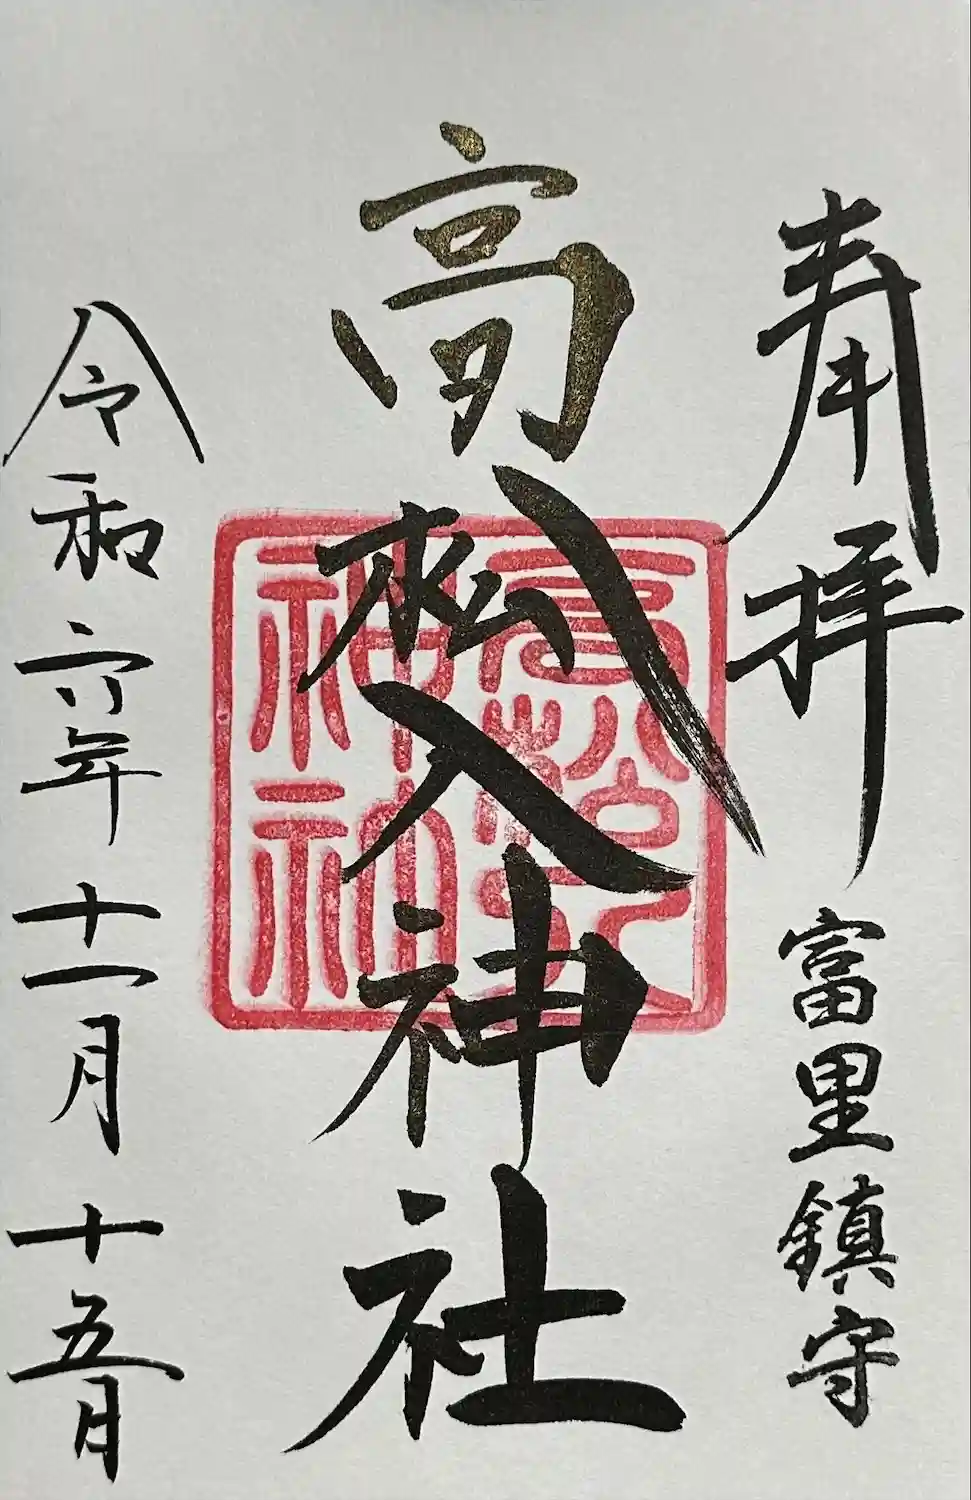 奉拝 富里鎮守
高松入神社
令和六年十一月十五日